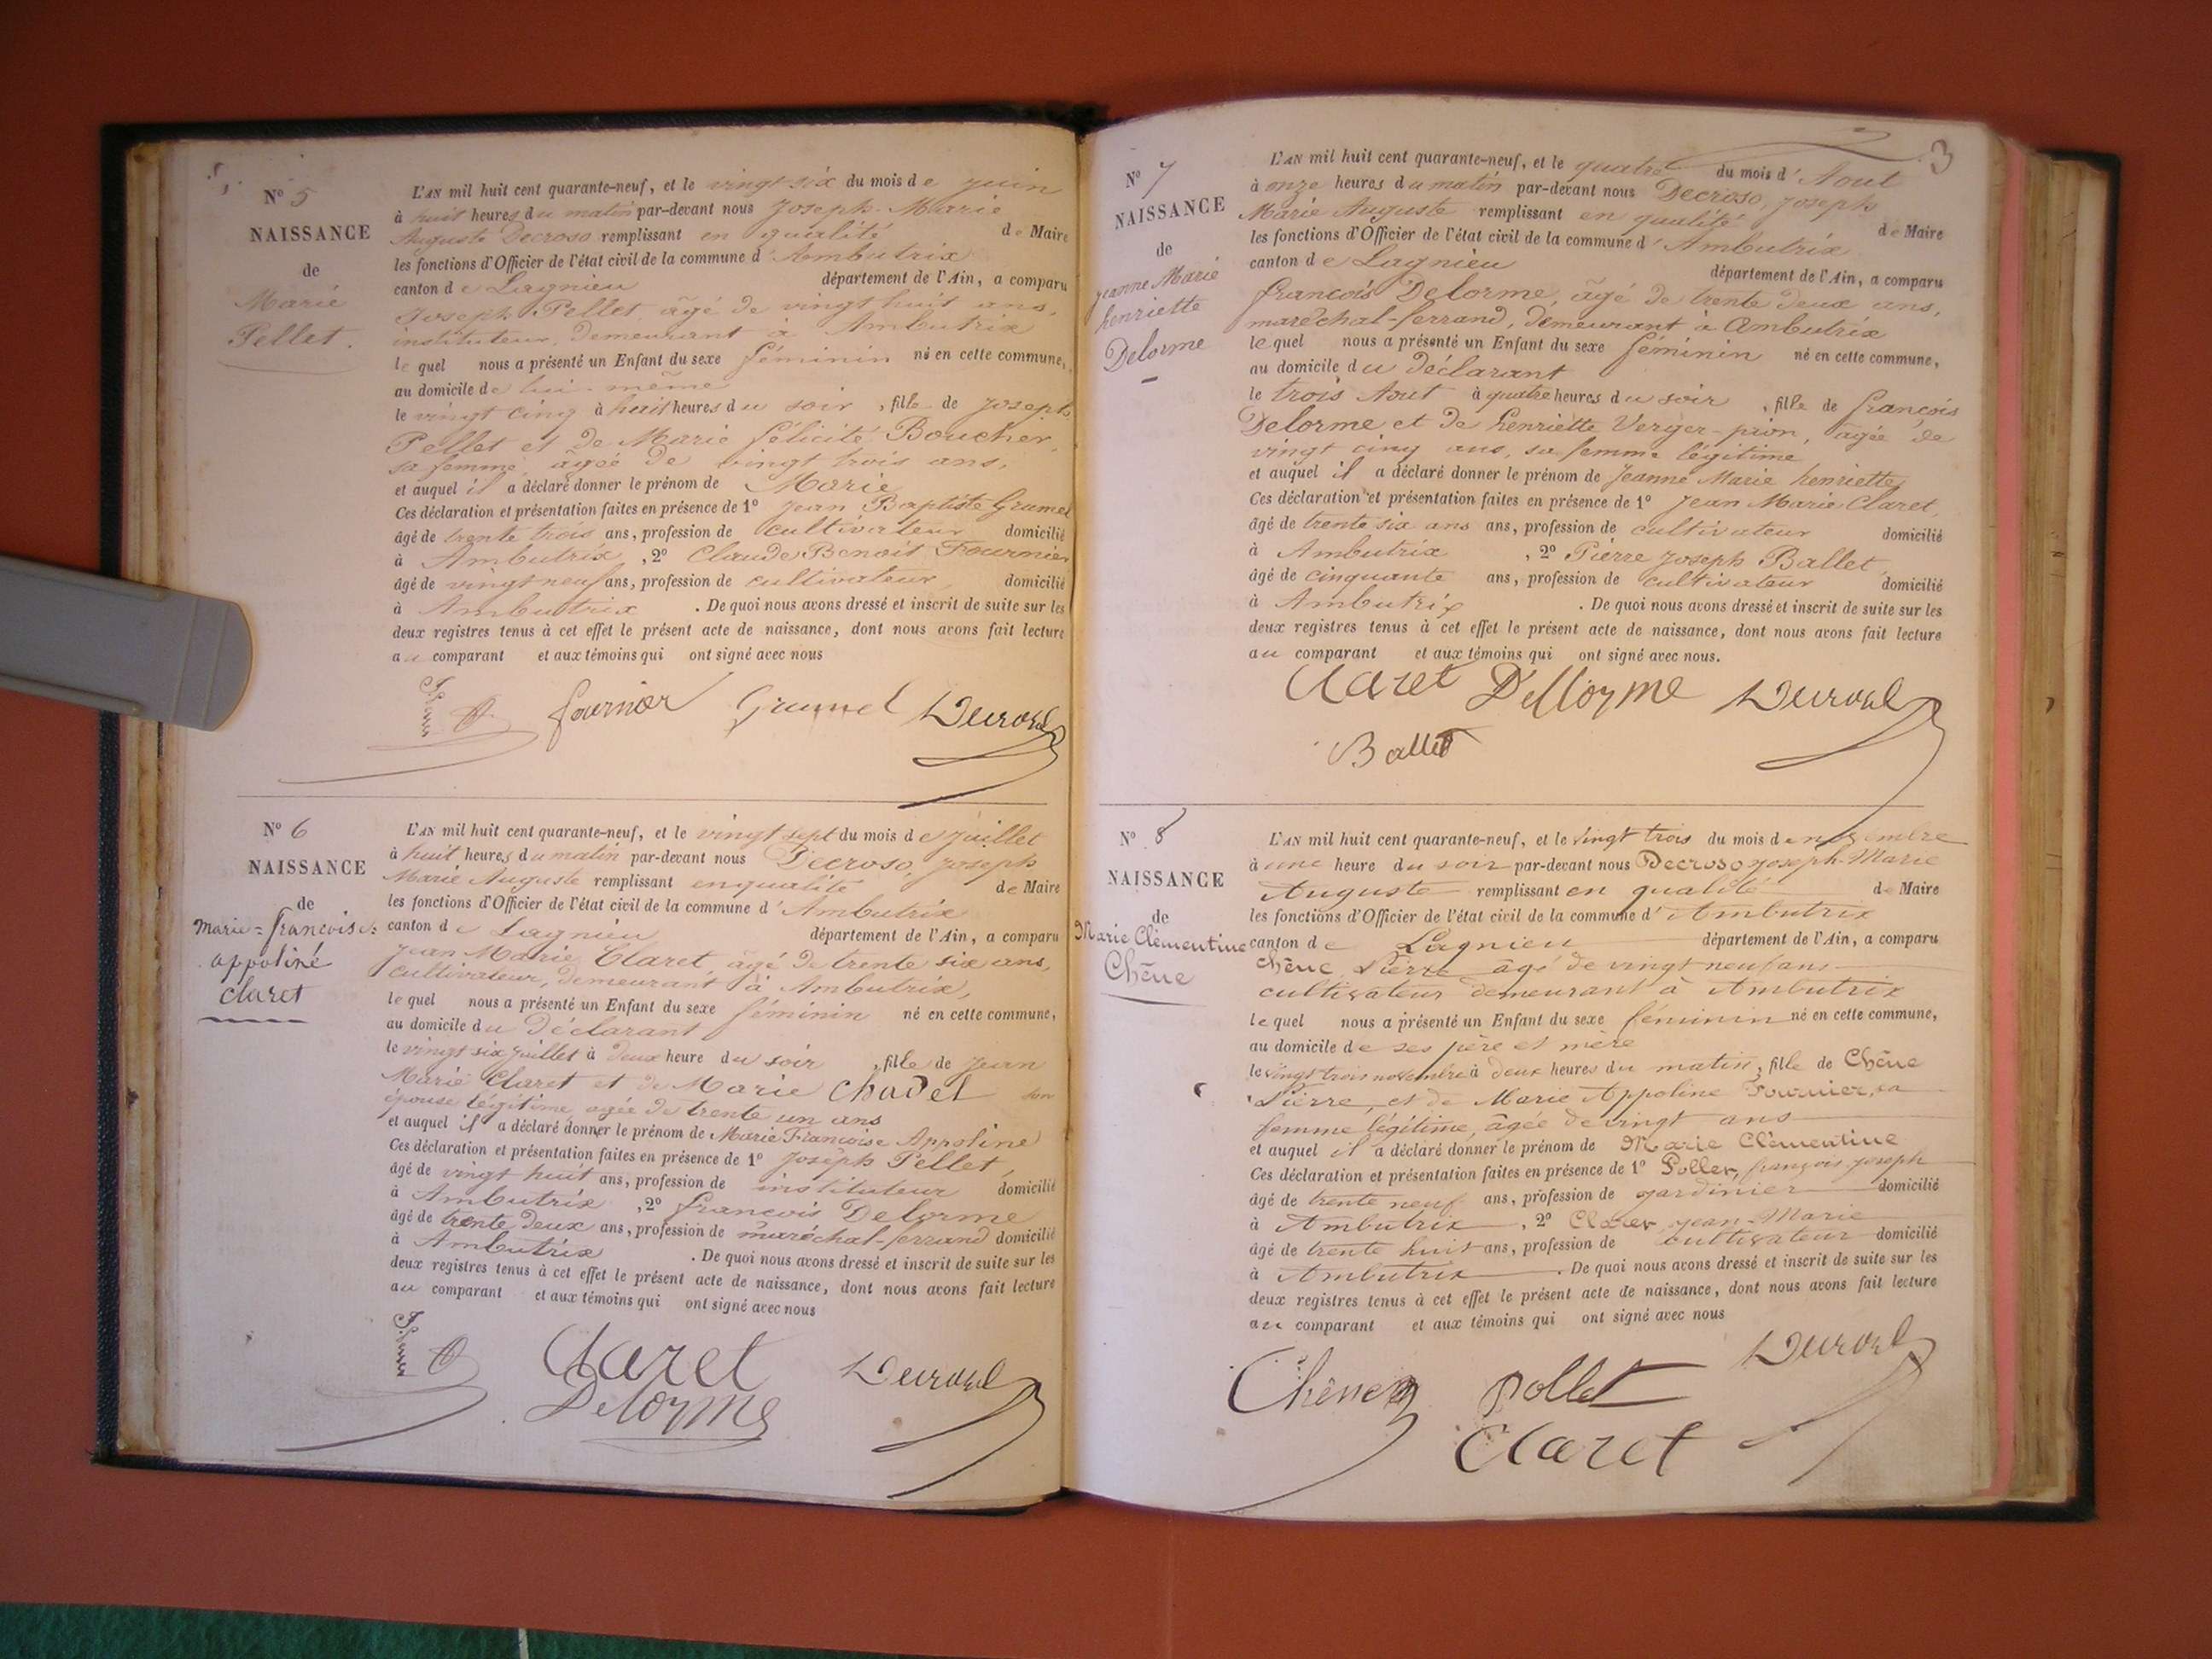 N° 5
NAISSANCE
de
Marie
Pellet.
L'AN mil huit cent quarante-neuf, et le vingt six du mois de juin
à huit heures du matin par-devant nous Joseph-Marie
Auguste Decroso remplissant en qualité de Maire
les fonctions d'Officier de l'état civil de la commune d'Ambutrix
canton de Lagnieu département de l'Ain, a comparu
Joseph Pellet, âgé de vingt huit ans,
instituteur, demeurant à Ambutrix
lequel nous a présenté un Enfant du sexe féminin né en cette commune,
au domicile de lui-même
le vingt cinq à huit heures du soir, fille de Joseph
Pellet et de Marie félicité Boucher,
sa femme, âgée de vingt trois ans,
et auquel il a déclaré donner le prénom de Marie
Ces déclaration et présentation faites en présence de 1° Jean Baptiste Grumel
âgé de trente trois ans, profession de cultivateur domicilié
à Ambutrix, 2° Claude Benoit Fournier
âgé de vingt neuf ans, profession de cultivateur domicilié
à Ambutrix. De quoi nous avons dressé et inscrit de suite sur les
deux registres tenus à cet effet le présent acte de naissance, dont nous avons fait lecture
au comparant et aux témoins qui ont signé avec nous
fournier Grumel Decroso
N° 6
NAISSANCE
de
Marie=francoise=
appoliné
Claret
L'AN mil huit cent quarante-neuf, et le vingt sept du mois de Juillet
à huit heures du matin par-devant nous Decroso, Joseph
Marie Auguste remplissant en qualité de Maire
les fonctions d'Officier de l'état civil de la commune d'Ambutrix
canton de Lagnieu département de l'Ain, a comparu
Jean Marie Claret, âgé de trente six ans,
cultivateur, demeurant à Ambutrix,
lequel nous a présenté un Enfant du sexe féminin né en cette commune,
au domicile du Déclarant
le vingt six juillet à deux heure du soir, fille de Jean
Marie Claret et de Marie Chadel son
épouse légitime agée de trente un ans
et auquel il a déclaré donner le prénom de Marie Francoise Appoline
Ces déclaration et présentation faites en présence de 1° Joseph Pellet,
âgé de vingt huit ans, profession de instituteur domicilié
à Ambutrix, 2° francois Delorme
âgé de trente deux ans, profession de maréchal-ferrand domicilié
à Ambutrix. De quoi nous avons dressé et inscrit de suite sur les
deux registres tenus à cet effet le présent acte de naissance, dont nous avons fait lecture
au comparant et aux témoins qui ont signé avec nous
Claret Decroso
Delorme
3
N° 7
NAISSANCE
de
Jeanne Marie
henriette
Delorme
L'AN mil huit cent quarante-neuf, et le quatre du mois d'Aout
à onze heures du matin par-devant nous Decroso, Joseph
Marie Auguste remplissant en qualité de Maire
les fonctions d'Officier de l'état civil de la commune d'Ambutrix
canton de Lagnieu département de l'Ain, a comparu
francois Delorme, âgé de trente deux ans,
maréchal-ferrand, demeurant à Ambutrix
lequel nous a présenté un Enfant du sexe féminin né en cette commune,
au domicile du déclarant
le trois Aout à quatre heures du soir, fille de françois
Delorme et de henriette Verger-pion, âgée de
vingt cinq ans, sa femme légitime
et auquel il a déclaré donner le prénom de Jeanne Marie henriette
Ces déclaration et présentation faites en présence de 1° Jean Marie Claret,
âgé de trente six ans ans, profession de cultivateur domicilié
à Ambutrix, 2° Pierre Joseph Ballet
âgé de cinquante ans, profession de cultivateur domicilié
à Ambutrix. De quoi nous avons dressé et inscrit de suite sur les
deux registres tenus à cet effet le présent acte de naissance, dont nous avons fait lecture
au comparant et aux témoins qui ont signé avec nous.
Claret Dellorme Decroso
Ballet
N° 8
NAISSANCE
de
Marie Clémentine
Chêne
L'AN mil huit cent quarante-neuf, et le vingt trois du mois de novembre
à une heure du soir par-devant nous Decroso Joseph-Marie
Auguste remplissant en qualité de Maire
les fonctions d'Officier de l'état civil de la commune d'Ambutrix
canton de Lagnieu département de l'Ain, a comparu
Chêne Pierre âgé de vingt neuf ans
cultivateur demeurant à Ambutrix
lequel nous a présenté un Enfant du sexe féminin né en cette commune,
au domicile de ses père et mère
le vingt trois novembre à deux heures du matin, fille de Chêne
Pierre, et de Marie Appoline Fournier, sa
femme légitime, âgée de vingt ans
et auquel il a déclaré donner le prénom de Marie Clémentine
Ces déclaration et présentation faites en présence de 1° Pollet, françois joseph
âgé de trente neuf ans, profession de jardinier domicilié
à Ambutrix, 2° Claret jean-Marie
âgé de trente huit ans, profession de cultivateur domicilié
à Ambutrix. De quoi nous avons dressé et inscrit de suite sur les
deux registres tenus à cet effet le présent acte de naissance, dont nous avons fait lecture
au comparant et aux témoins qui ont signé avec nous
Decroso
Chêne pollet
Claret